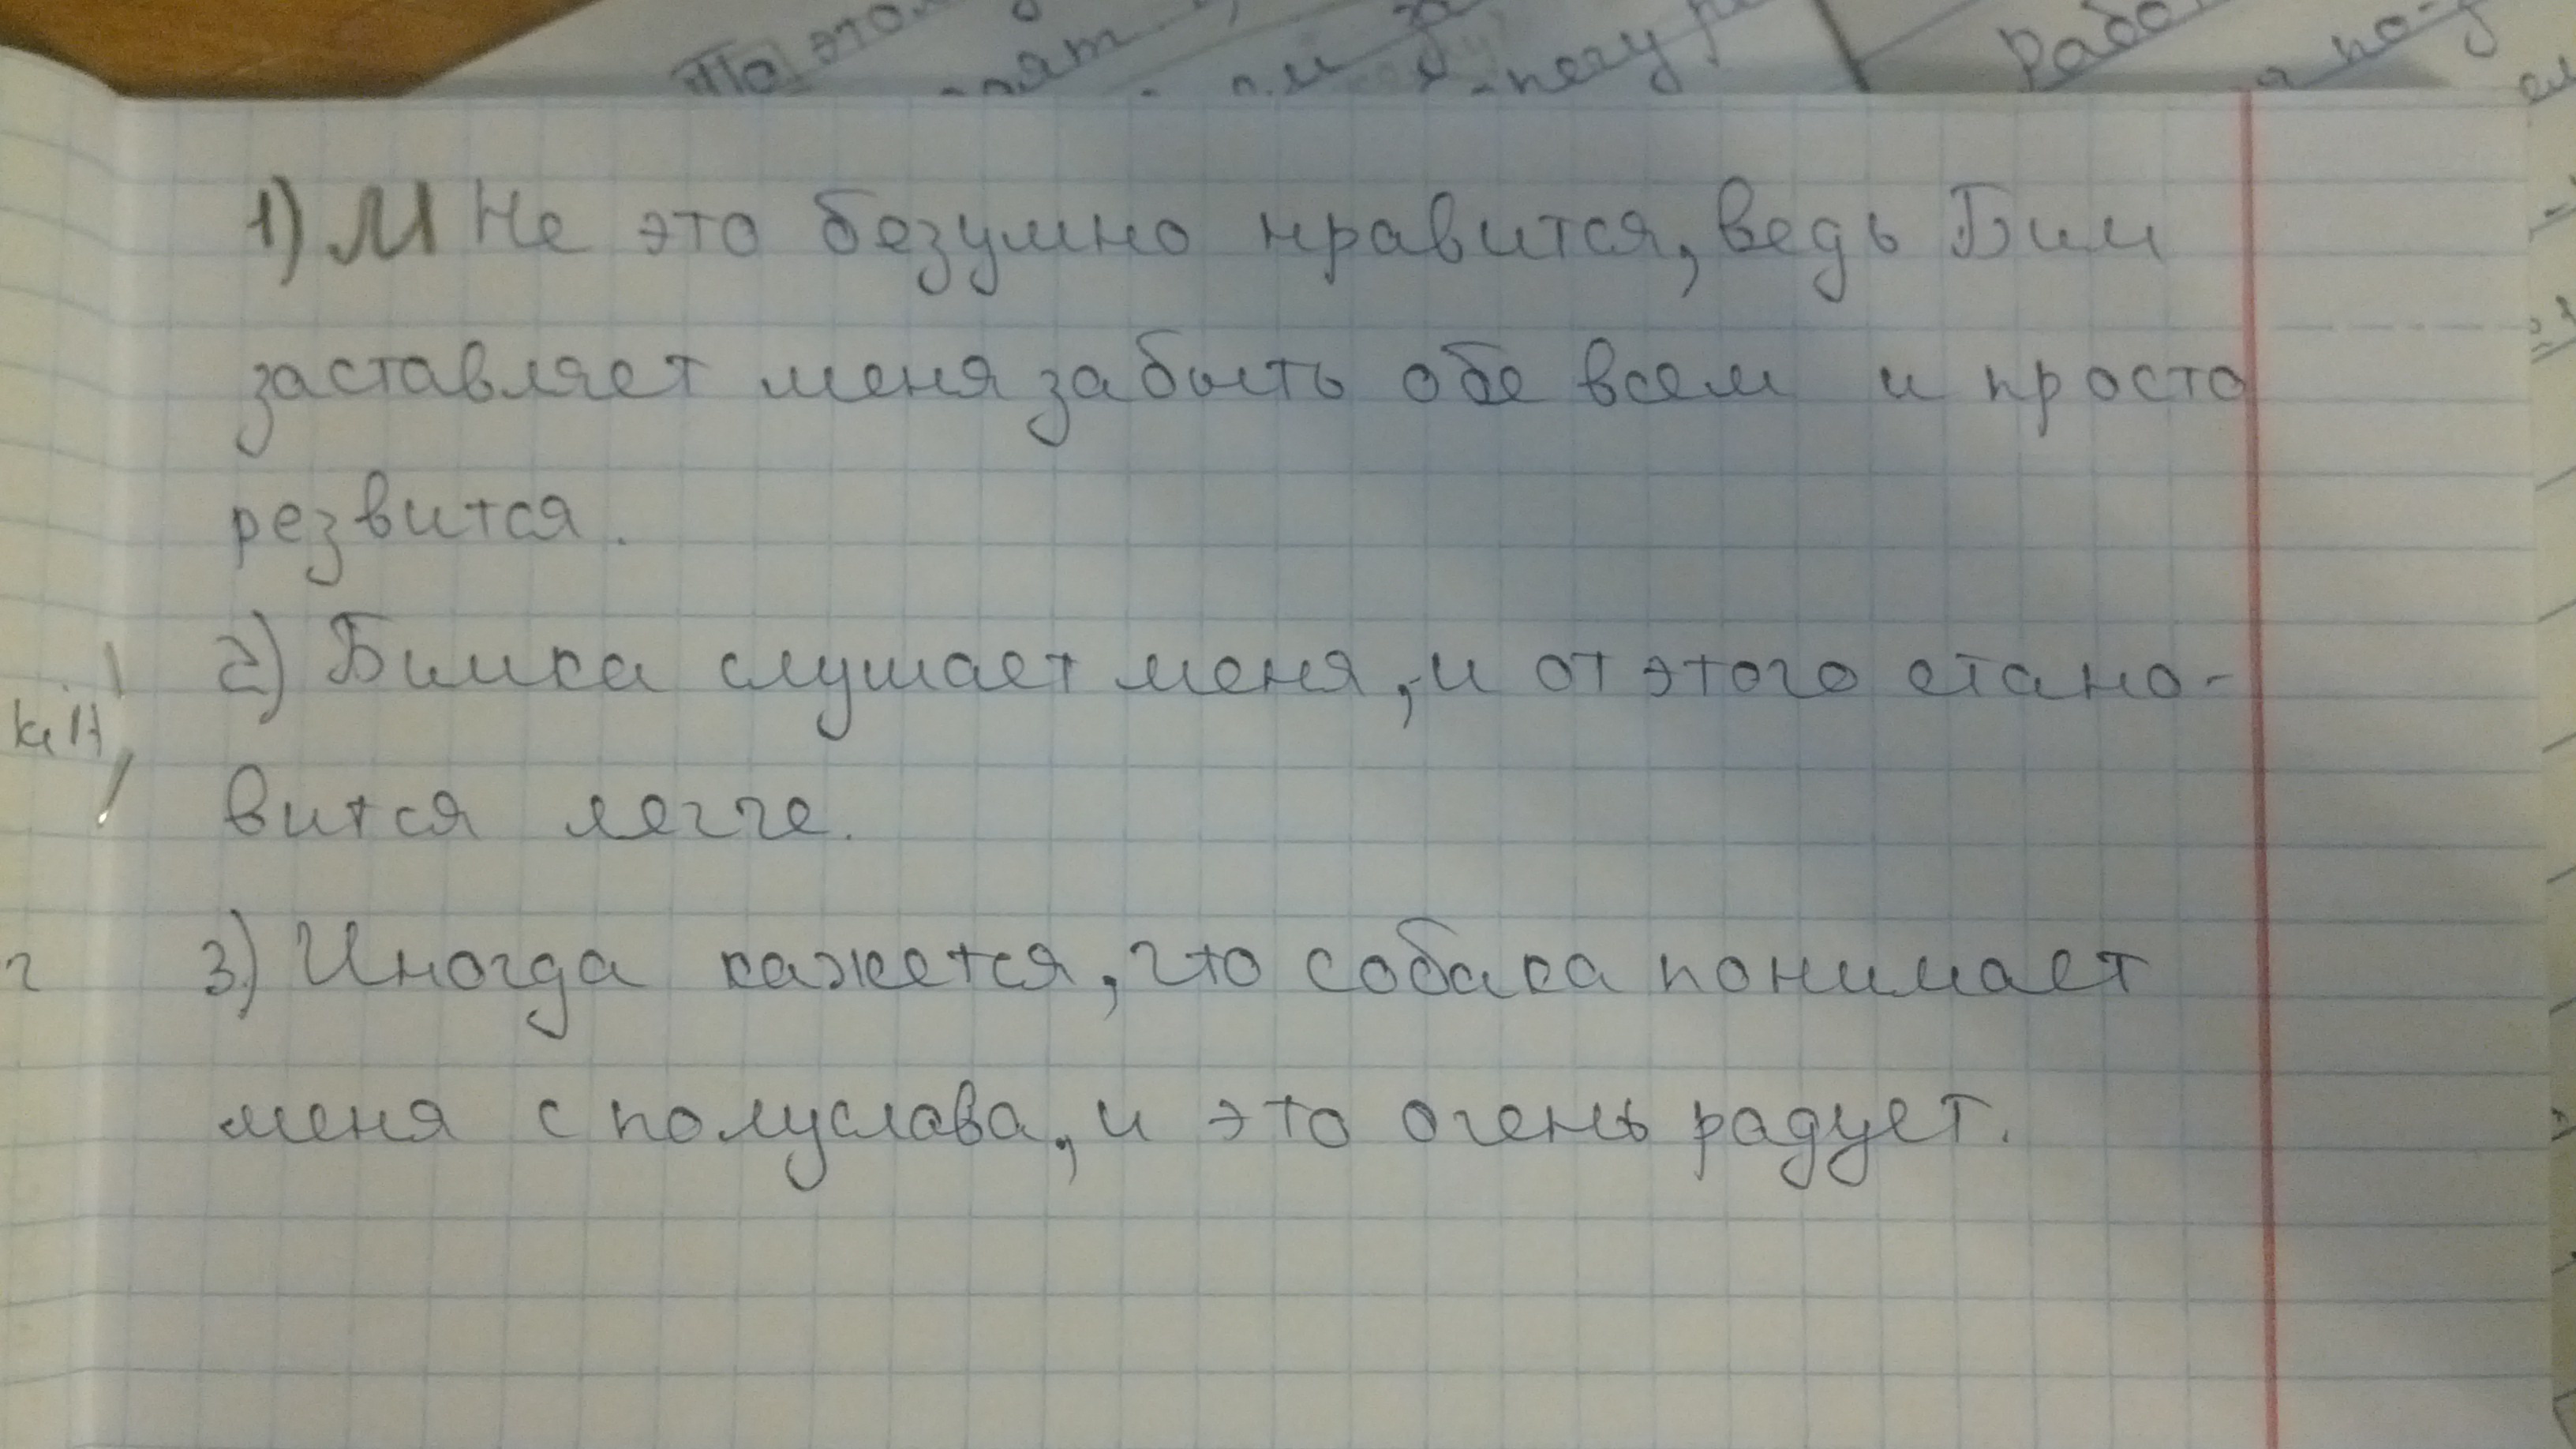 По этом
Рабо
1) М Не это безумно нравится, ведь Бим
заставляет меня забыть обе всем и просто
резвится.
2) Бимка слушает меня, и от этого стано-
вится легче.
3) Иногда кажется, что собака понимает
меня с полуслова, и это очень радует.